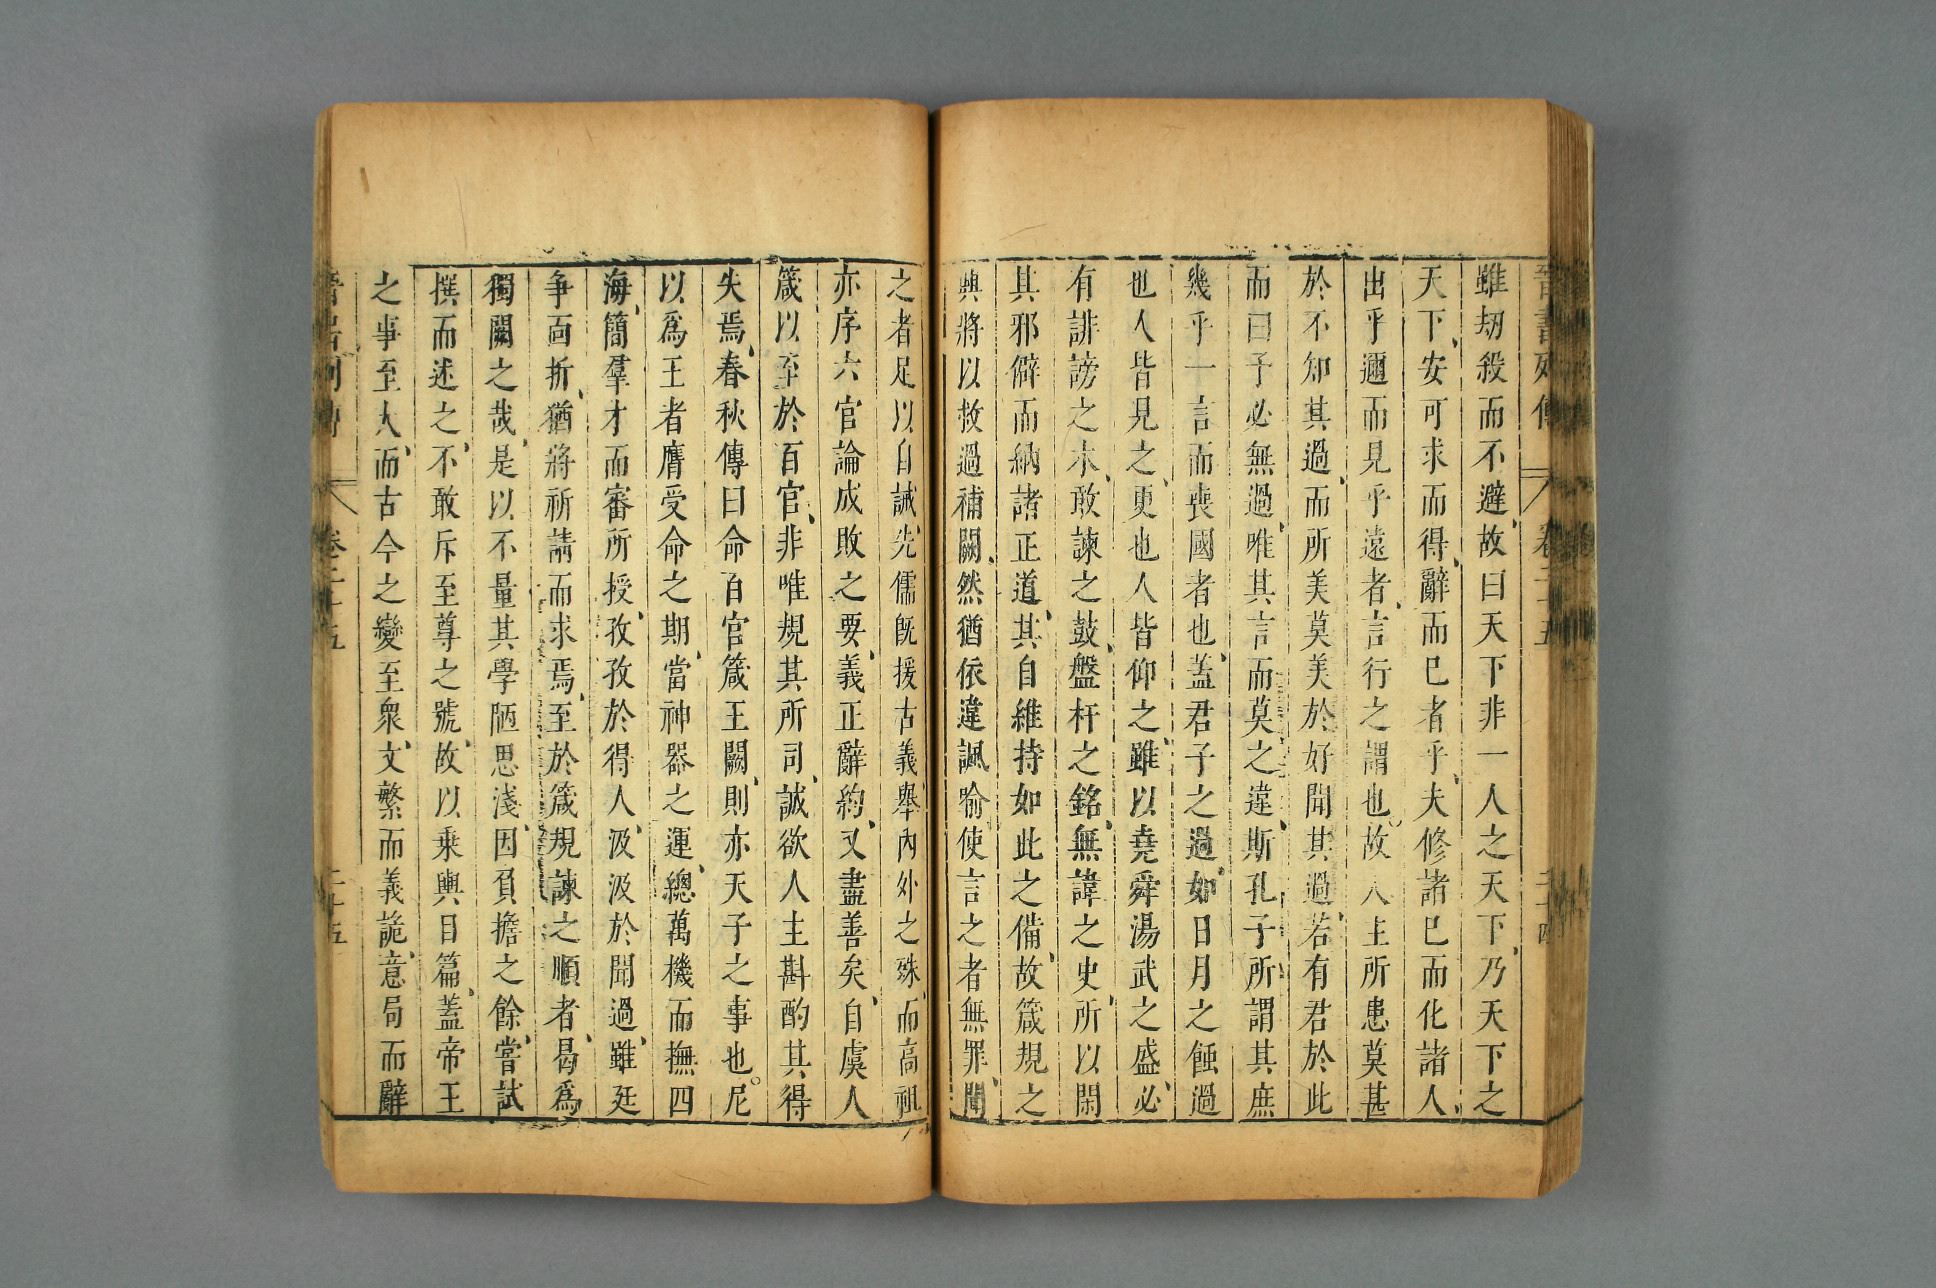 晉書列傳 卷二十五 二十四
雖劫殺而不避故曰天下非一人之天下乃天下之
天下安可求而得辭而已者乎夫修諸己而化諸人
出乎邇而見乎遠者言行之謂也故人主所患莫甚
於不知其過而所美莫美於好聞其過若有君於此
而曰予必無過唯其言而莫之違斯孔子所謂其庶
幾乎一言而喪國者也蓋君子之過如日月之蝕過
也人皆見之更也人皆仰之雖以堯舜湯武之盛必
有誹謗之木敢諫之鼓盤杅之銘無諱之史所以閑
其邪僻而納諸正道其自維持如此之備故箴規之
興將以救過補闕然猶依違諷喻使言之者無罪聞
之者足以自誡先儒旣援古義舉內外之殊而高祖
亦序六官論成敗之要義正辭約又盡善矣自虞人
箴以至於百官非唯規其所司誠欲人主斟酌其得
失焉春秋傳曰命百官箴王闕則亦天子之事也尼
以爲王者膺受命之期當神器之運總萬機而撫四
海簡羣才而審所授孜孜於得人汲汲於聞過雖廷
争面折猶將祈請而求焉至於箴規諫之順者曷爲
獨闕之哉是以不量其學陋思淺因負擔之餘嘗試
撰而述之不敢斥至尊之號故以乘輿目篇蓋帝王
之事至大而古今之變至衆文繁而義詭意局而辭
晉書列傳 卷二十五 二十五